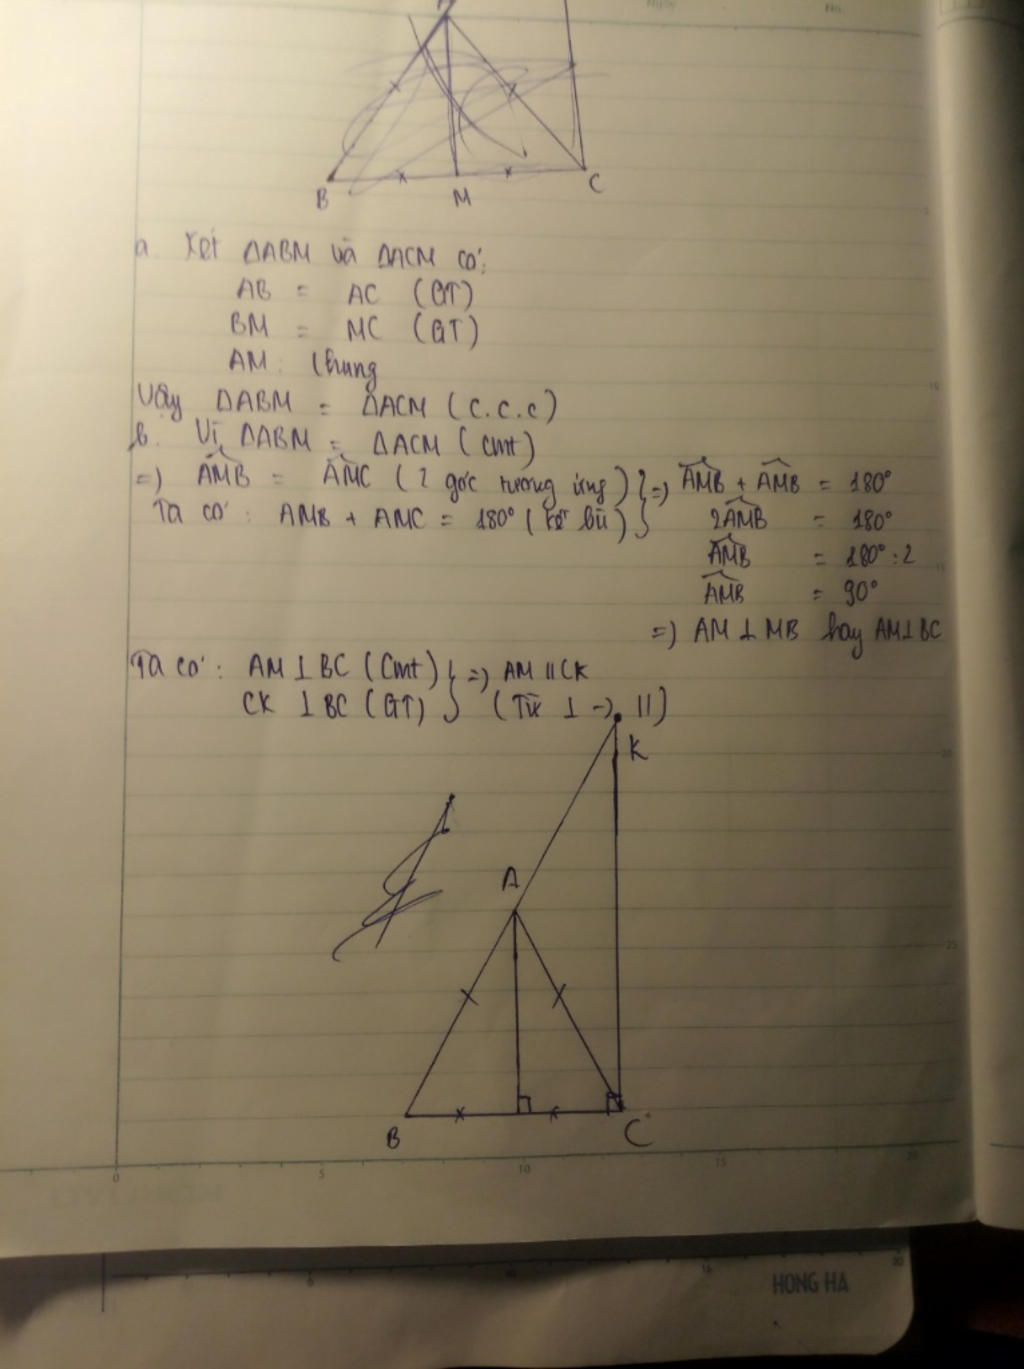 Ngày No.
B M C
a. Xét ΔABM và ΔACM có:
AB = AC (GT)
BM = MC (GT)
AM : Chung
Vậy ΔABM = ΔACM (c.c.c)
b. Vì ΔABM = ΔACM (cmt)
=) AMB = AMC (2 góc tương ứng) } =) AMB + AMB = 180°
Ta có: AMB + AMC = 180° (kề bù) } 2AMB = 180°
AMB = 180° : 2
AMB = 90°
=) AM ⊥ MB hay AM ⊥ BC
Ta có: AM ⊥ BC (Cmt) } =) AM // CK
CK ⊥ BC (GT) } (Từ ⊥ -> //)
K
A
B C
0 5 10 15 20
HONG HA